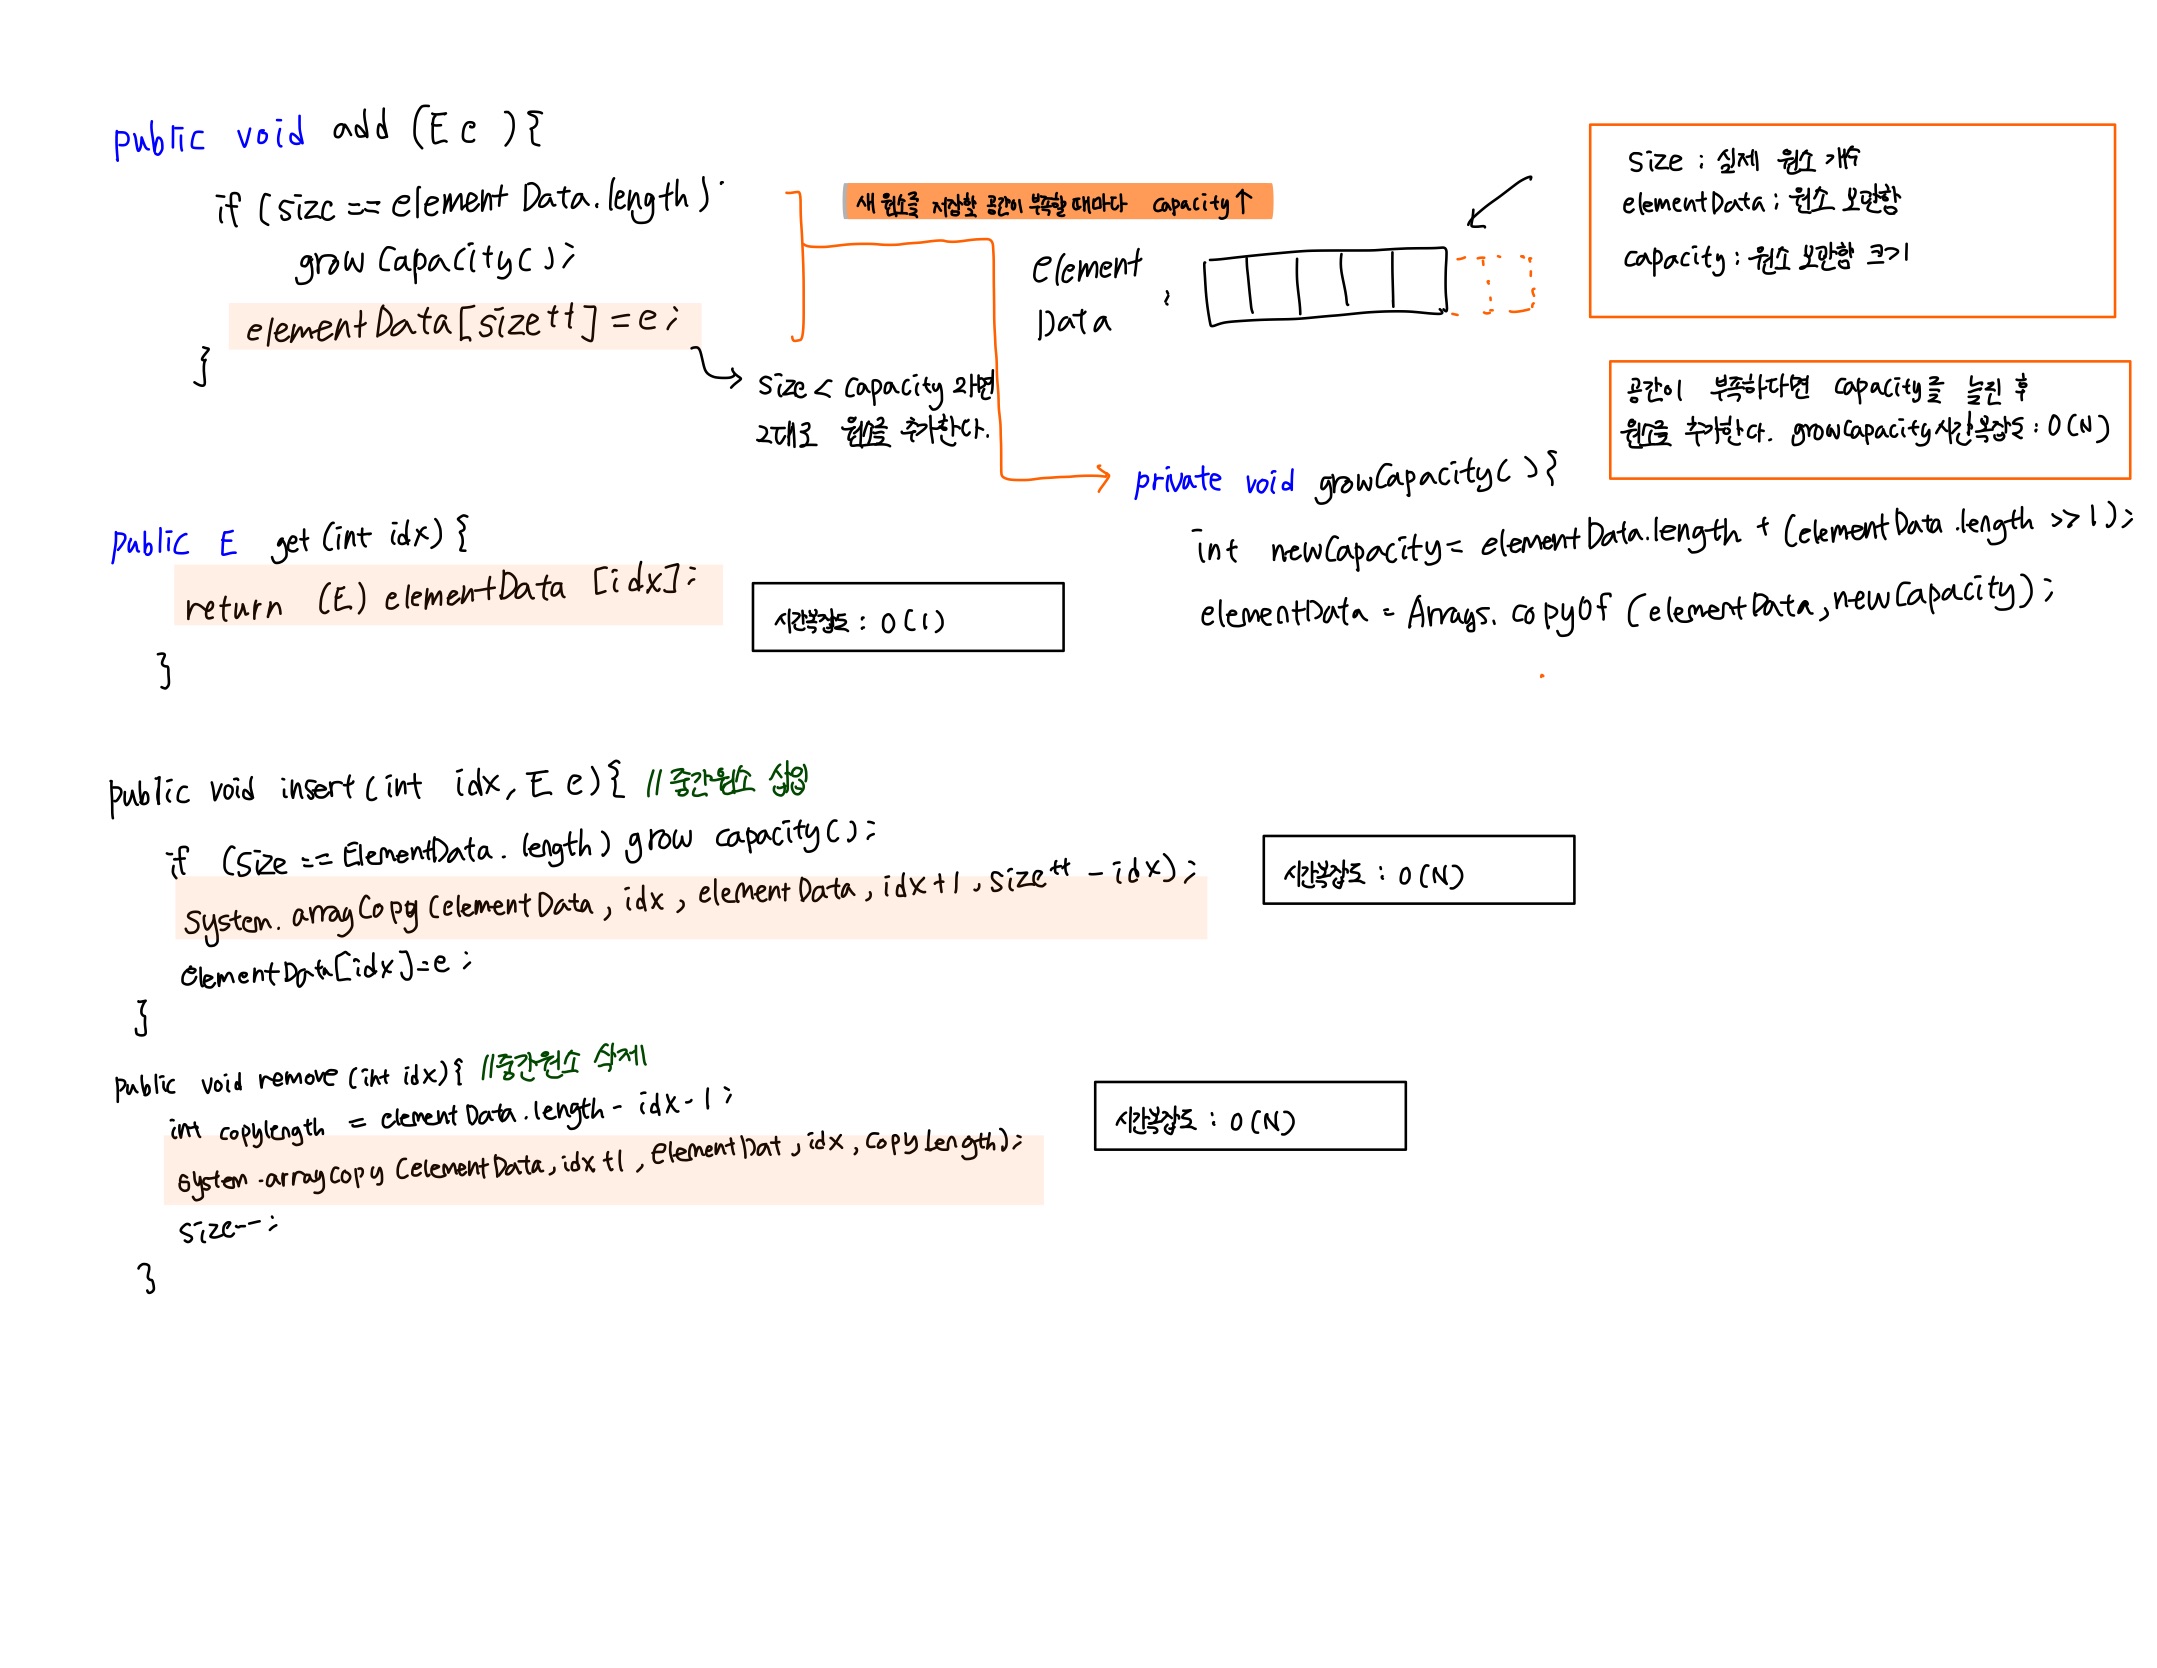 public void add (E e ){
if (size == elementData.length)
growCapacity();
elementData[size++] = e;
}
새 원소를 저장할 공간이 부족할 때마다 capacity↑
size < capacity 라면
그대로 원소를 추가한다.
element
Data :
size : 실제 원소 개수
elementData : 원소 보관함
capacity : 원소 보관함 크기
공간이 부족하다면 capacity를 늘린 후
원소를 추가한다. growCapacity시간복잡도 : O(N)
private void growCapacity( ){
int newCapacity = elementData.length + (elementData.length >> 1);
elementData = Arrays.copyOf (elementData, newCapacity);
public E get (int idx) {
return (E) elementData [idx];
}
시간복잡도 : O(1)
public void insert (int idx, E e){ //중간원소 삽입
if (size == ElementData.length) grow capacity();
system.arrayCopy (elementData, idx, elementData, idx+1, size++ - idx);
elementData[idx]=e ;
}
시간복잡도 : O(N)
public void remove (int idx){ //중간원소 삭제
int copylength = elementData.length - idx-1;
system.arraycopy (elementData, idx+1, elementDat, idx, copyLength);
size--;
}
시간복잡도 : O(N)